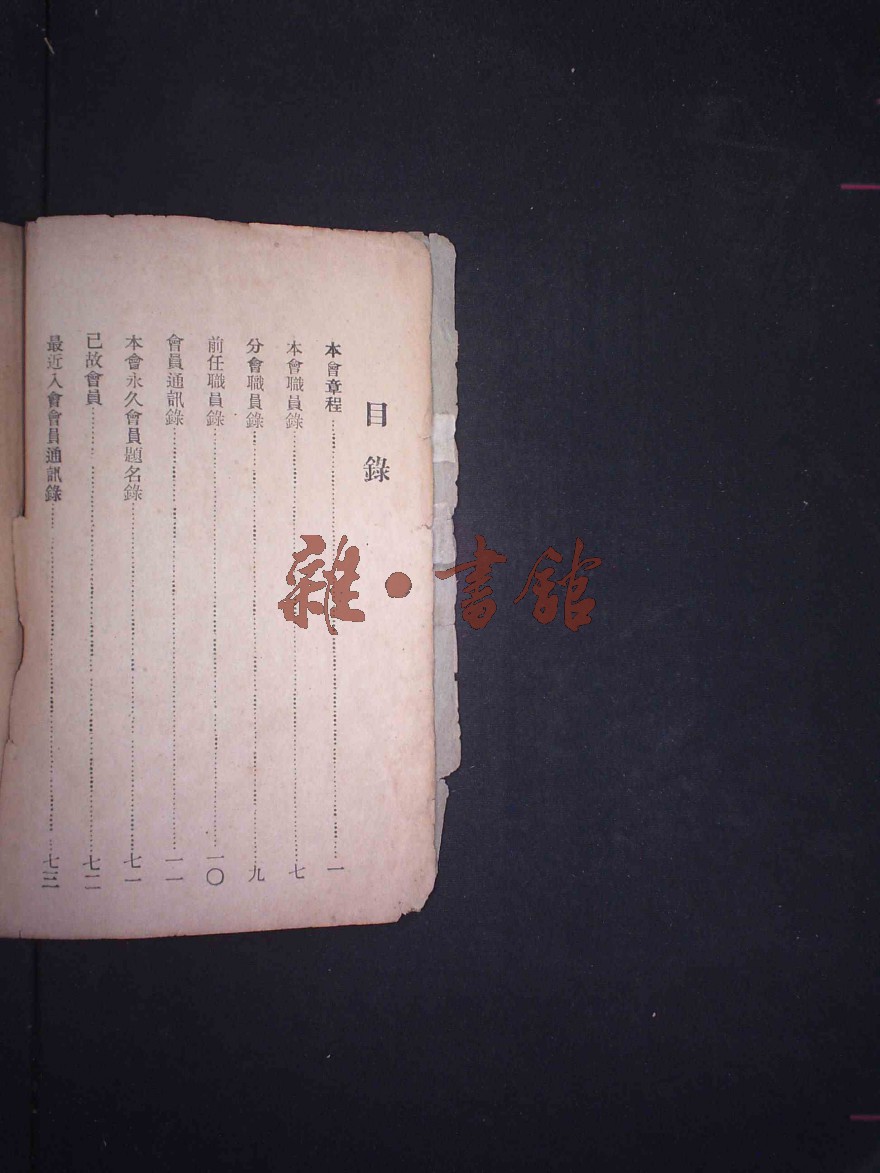 目錄
本會章程……一
本會職員錄……七
分會職員錄……九
前任職員錄……一〇
會員通訊錄……一一
本會永久會員題名錄……七一
已故會員……七二
最近入會會員通訊錄……七三
雜·書館